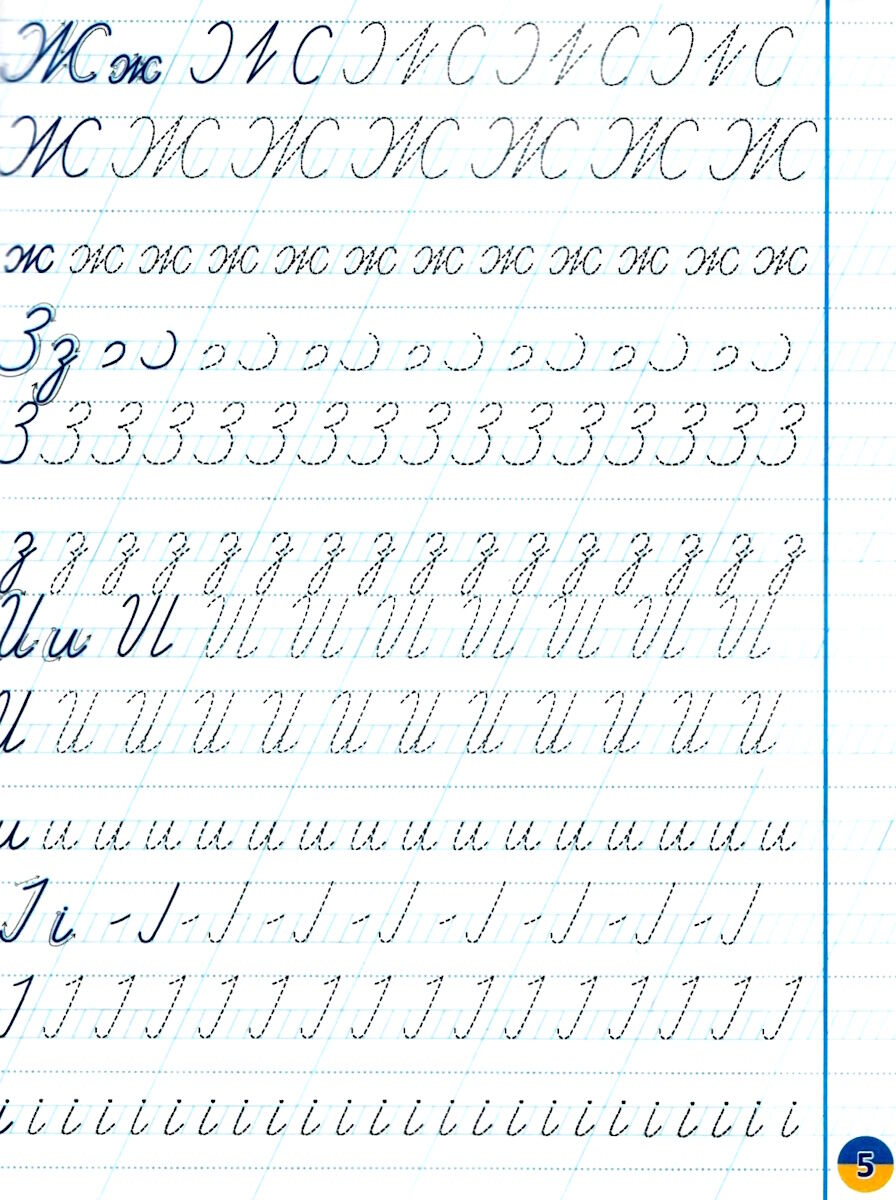 Жж
Ж Ж Ж Ж Ж Ж Ж
ж ж ж ж ж ж ж ж ж ж ж ж
Зз
З З З З З З З З З З З З З З З З
з з з з з з з з з з з з з з з з
Ии
И И И И И И И И И И И И
и и и и и и и и и и и и и и и и
Іі
І І І І І І І І І І І І І І І І
і і і і і і і і і і і і і і і і і і і і і і і і
5